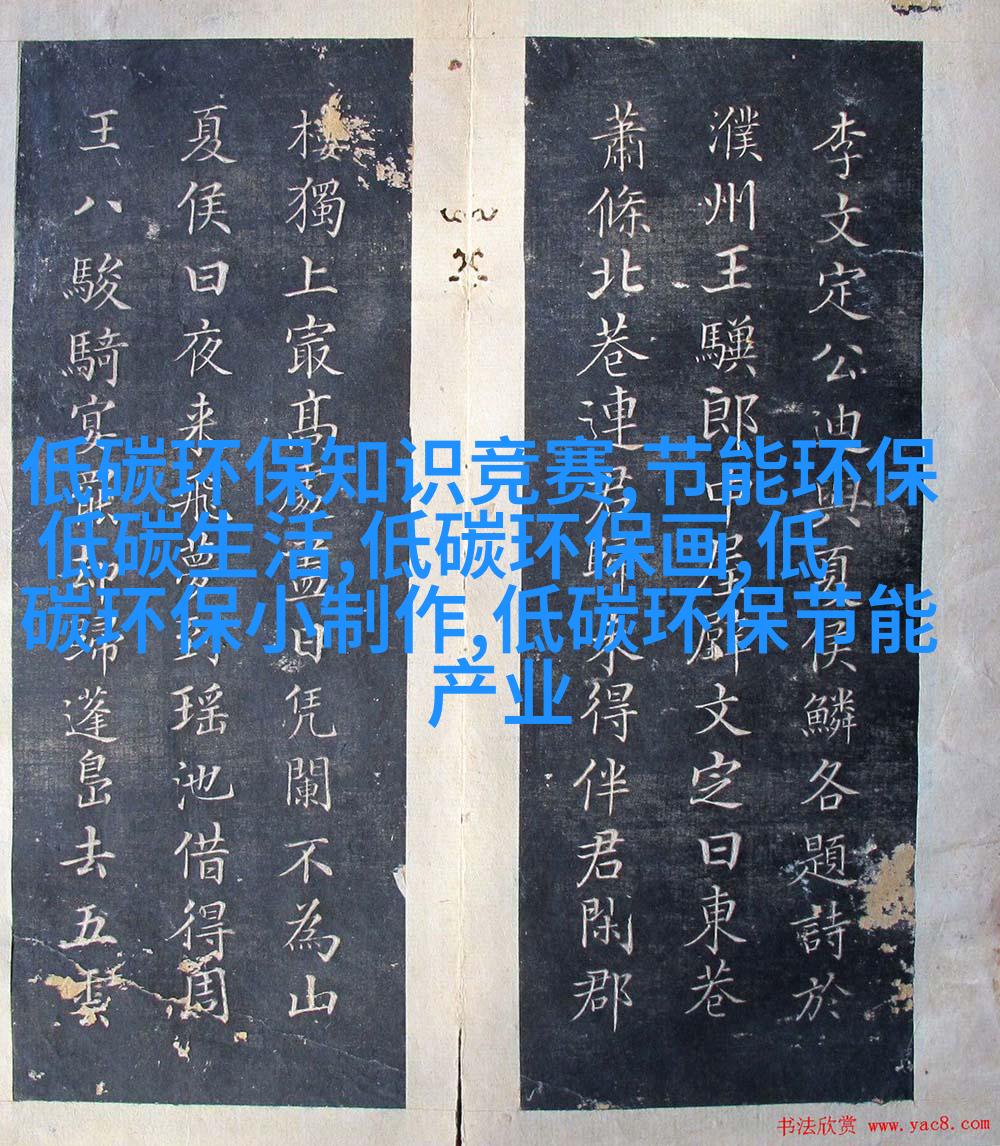 李文定公迪與夏侯鱗各題詩於
濮州王郎中文定曰東巷
蕭條北巷連君得伴君閑郡
樓獨上㝡高處盡日凭闌不為山
夏侯曰夜来飛夢到瑶池借得周
王八駿騎宴罷却歸蓬島去五雲
低碳环保知识竞赛,节能环保
低碳生活,低碳环保画,低
碳环保小制作,低碳环保节能
产业
书法欣赏 www.yac8.com